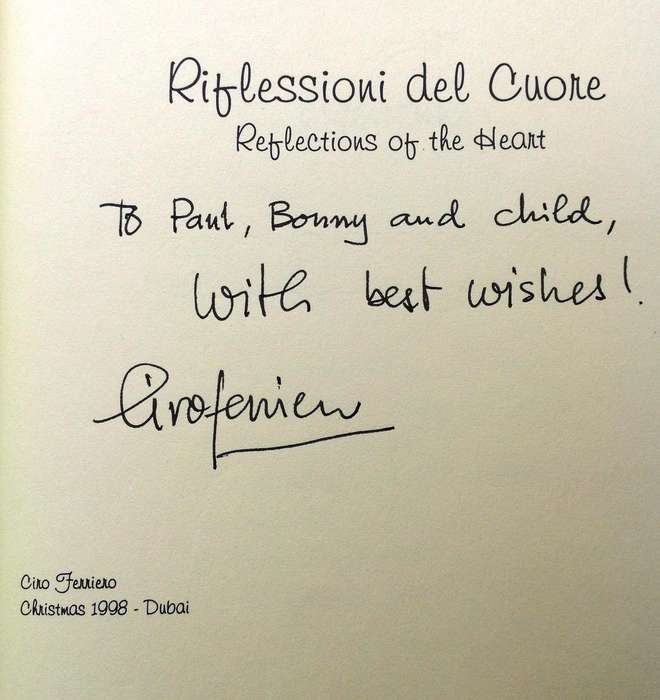 Riflessioni del Cuore
Reflections of the Heart
To Paul, Bonny and child,
With best wishes!
Ciroferriero
Ciro Ferriero
Christmas 1998 - Dubai